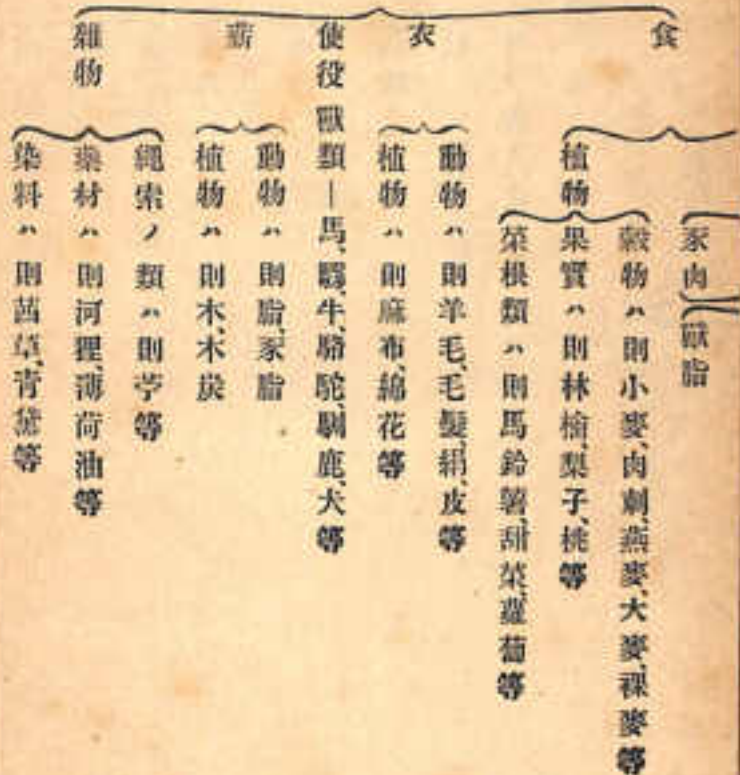 食
家肉
獸脂
植物
穀物ハ則小麥、肉刺、燕麥、大麥、裸麥等
果實ハ則林檎、梨子、桃等
菜根類ハ則馬鈴薯、甜菜、蘿蔔等
衣
動物ハ則羊毛、毛髮、絹、皮等
植物ハ則麻布、綿花等
使役
獸類—馬、騾、牛、駱駝、馴鹿、犬等
薪
動物ハ則脂、豕脂
植物ハ則木、木炭
雜物
繩索ノ類ハ則苧等
藥材ハ則河狸、薄荷油等
染料ハ則茜草、青黛等